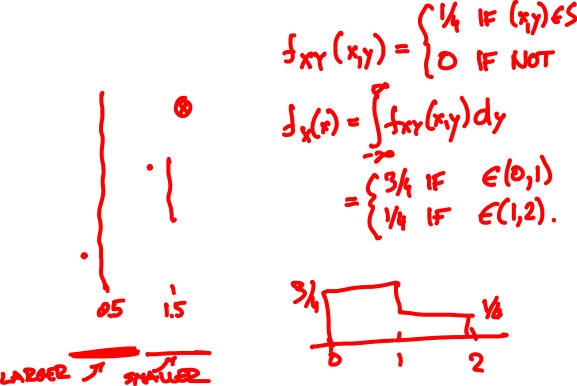 f_XY(x,y) = { 1/4 IF (x,y) ∈ S
0 IF NOT
f_X(x) = ∫_{-∞}^{∞} f_XY(x,y) dy
= { 3/4 IF ∈(0,1)
1/4 IF ∈(1,2).
0.5 1.5
LARGER SMALLER
3/4 1/4
0 1 2